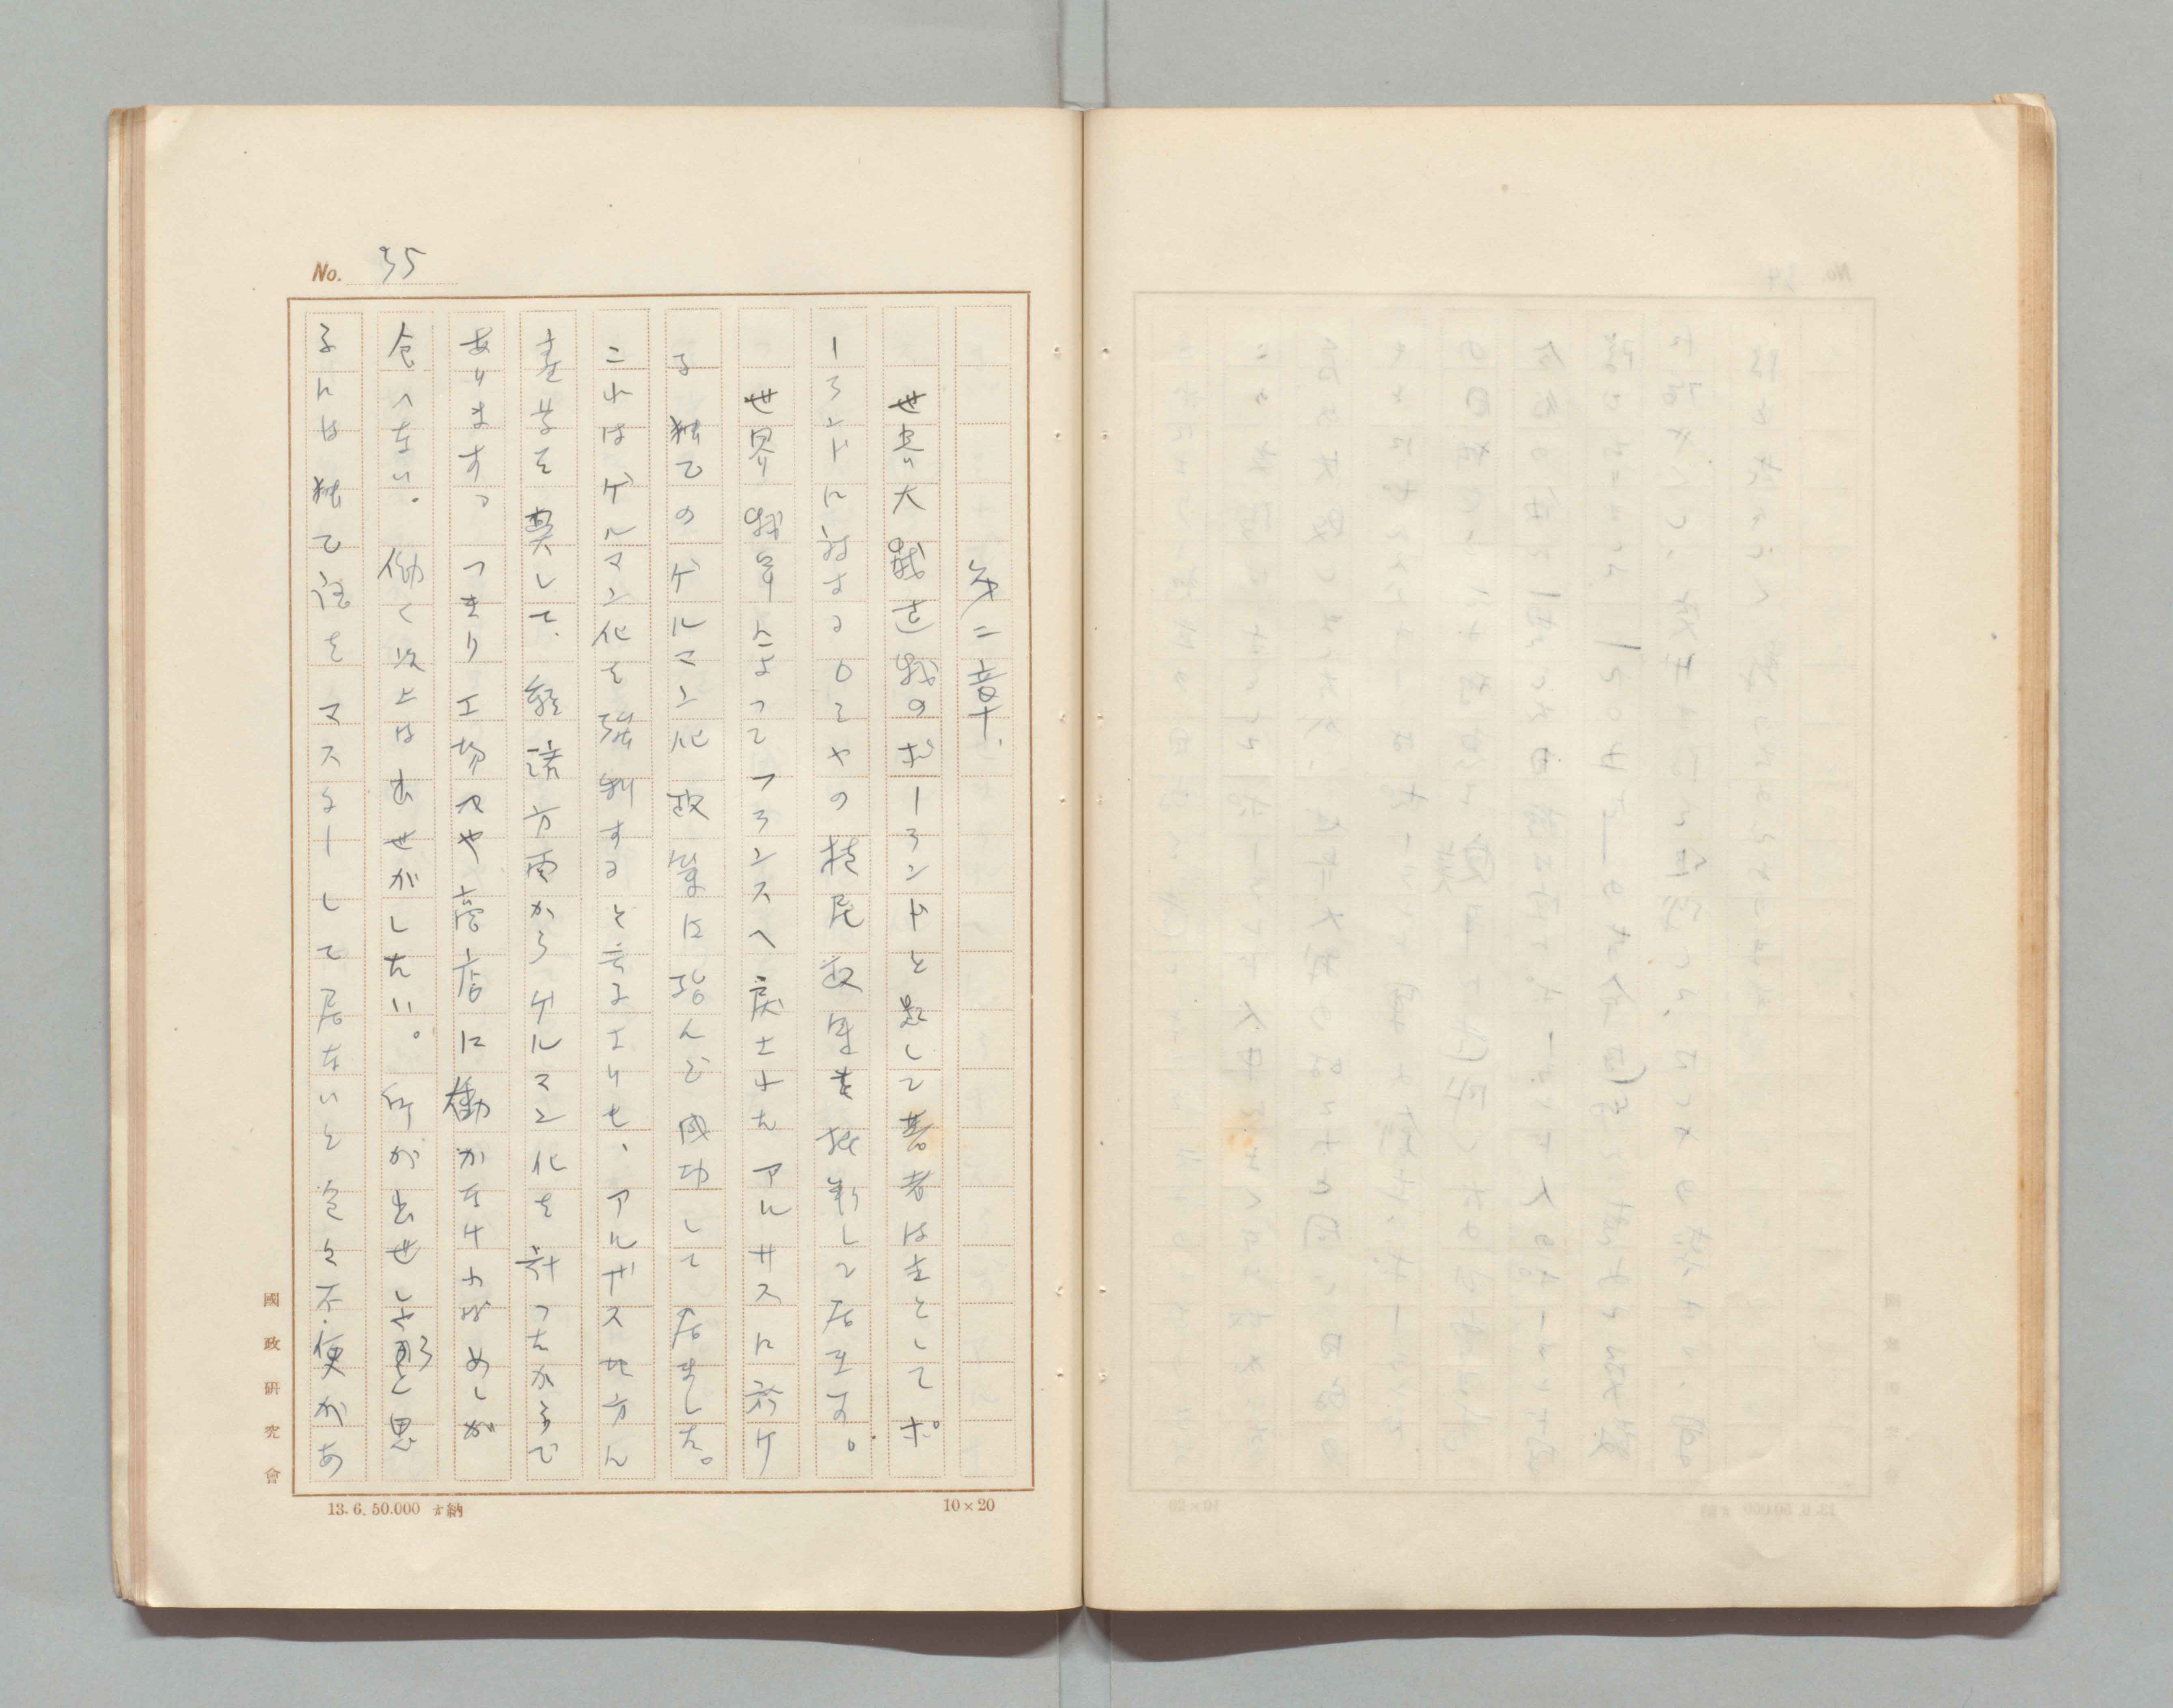 No. 35
才二章.
世界大戰 のポーランドと題して著者は主としてポ
ーランドに対するロシヤの植民政策を批判して居ます。
世界戦争によってフランスへ戻されたアルサスに於け
る独乙のゲルマン化政策は殆んど成功して居ました。
これはゲルマン化を強制すると言ふよりも、アルザス地方人
を して、経済方面からゲルマン化を計つたからで
あります。つまり工場や商店に働かなければめしが
食へない。働く以上は出せがしたい。所が出せしやうと思
ふには独乙語をマスターして居ないと色々不便があ
國政研究會
13. 6. 50.000 納
10×20